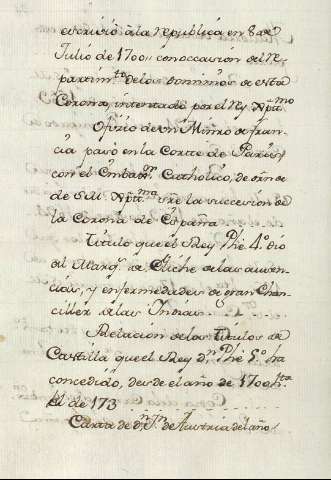 escrivió à la Republica en 8 de
Julio de 1700,, con occasion del Re
partim.to de los Dominios de esta
Corona, intentado por el Rey Xptt.mo
Ofizio de un Minro de fran-
cia paso en la Cortte de Paris,
con el Embax.or Catholico, de orn de
de S.M. Xptt.ma sre la succesion de
la Corona de España
Titulo que el Rey Phe 4.º dió
al Marq.s de Eliche de las ausen-
cias, y enfermedades de gran Chan-
ciller de las Indias.
Relacion de los Titulos de
Castilla que el Rey d.n Phe 5.º ha
concedido, desde el año de 1700 h.ta
el de 173
Carta de d.n Jn. de Austria del año